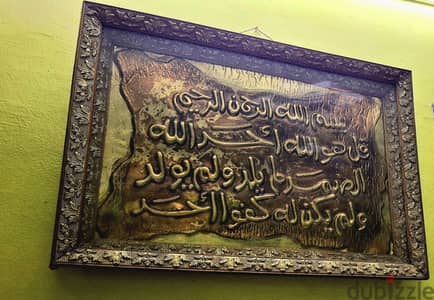 بسم الله الرحمن الرحيم
قل هو الله أحد الله
الصمد لم يلد ولم يولد
ولم يكن له كفوا أحد
dubizzle